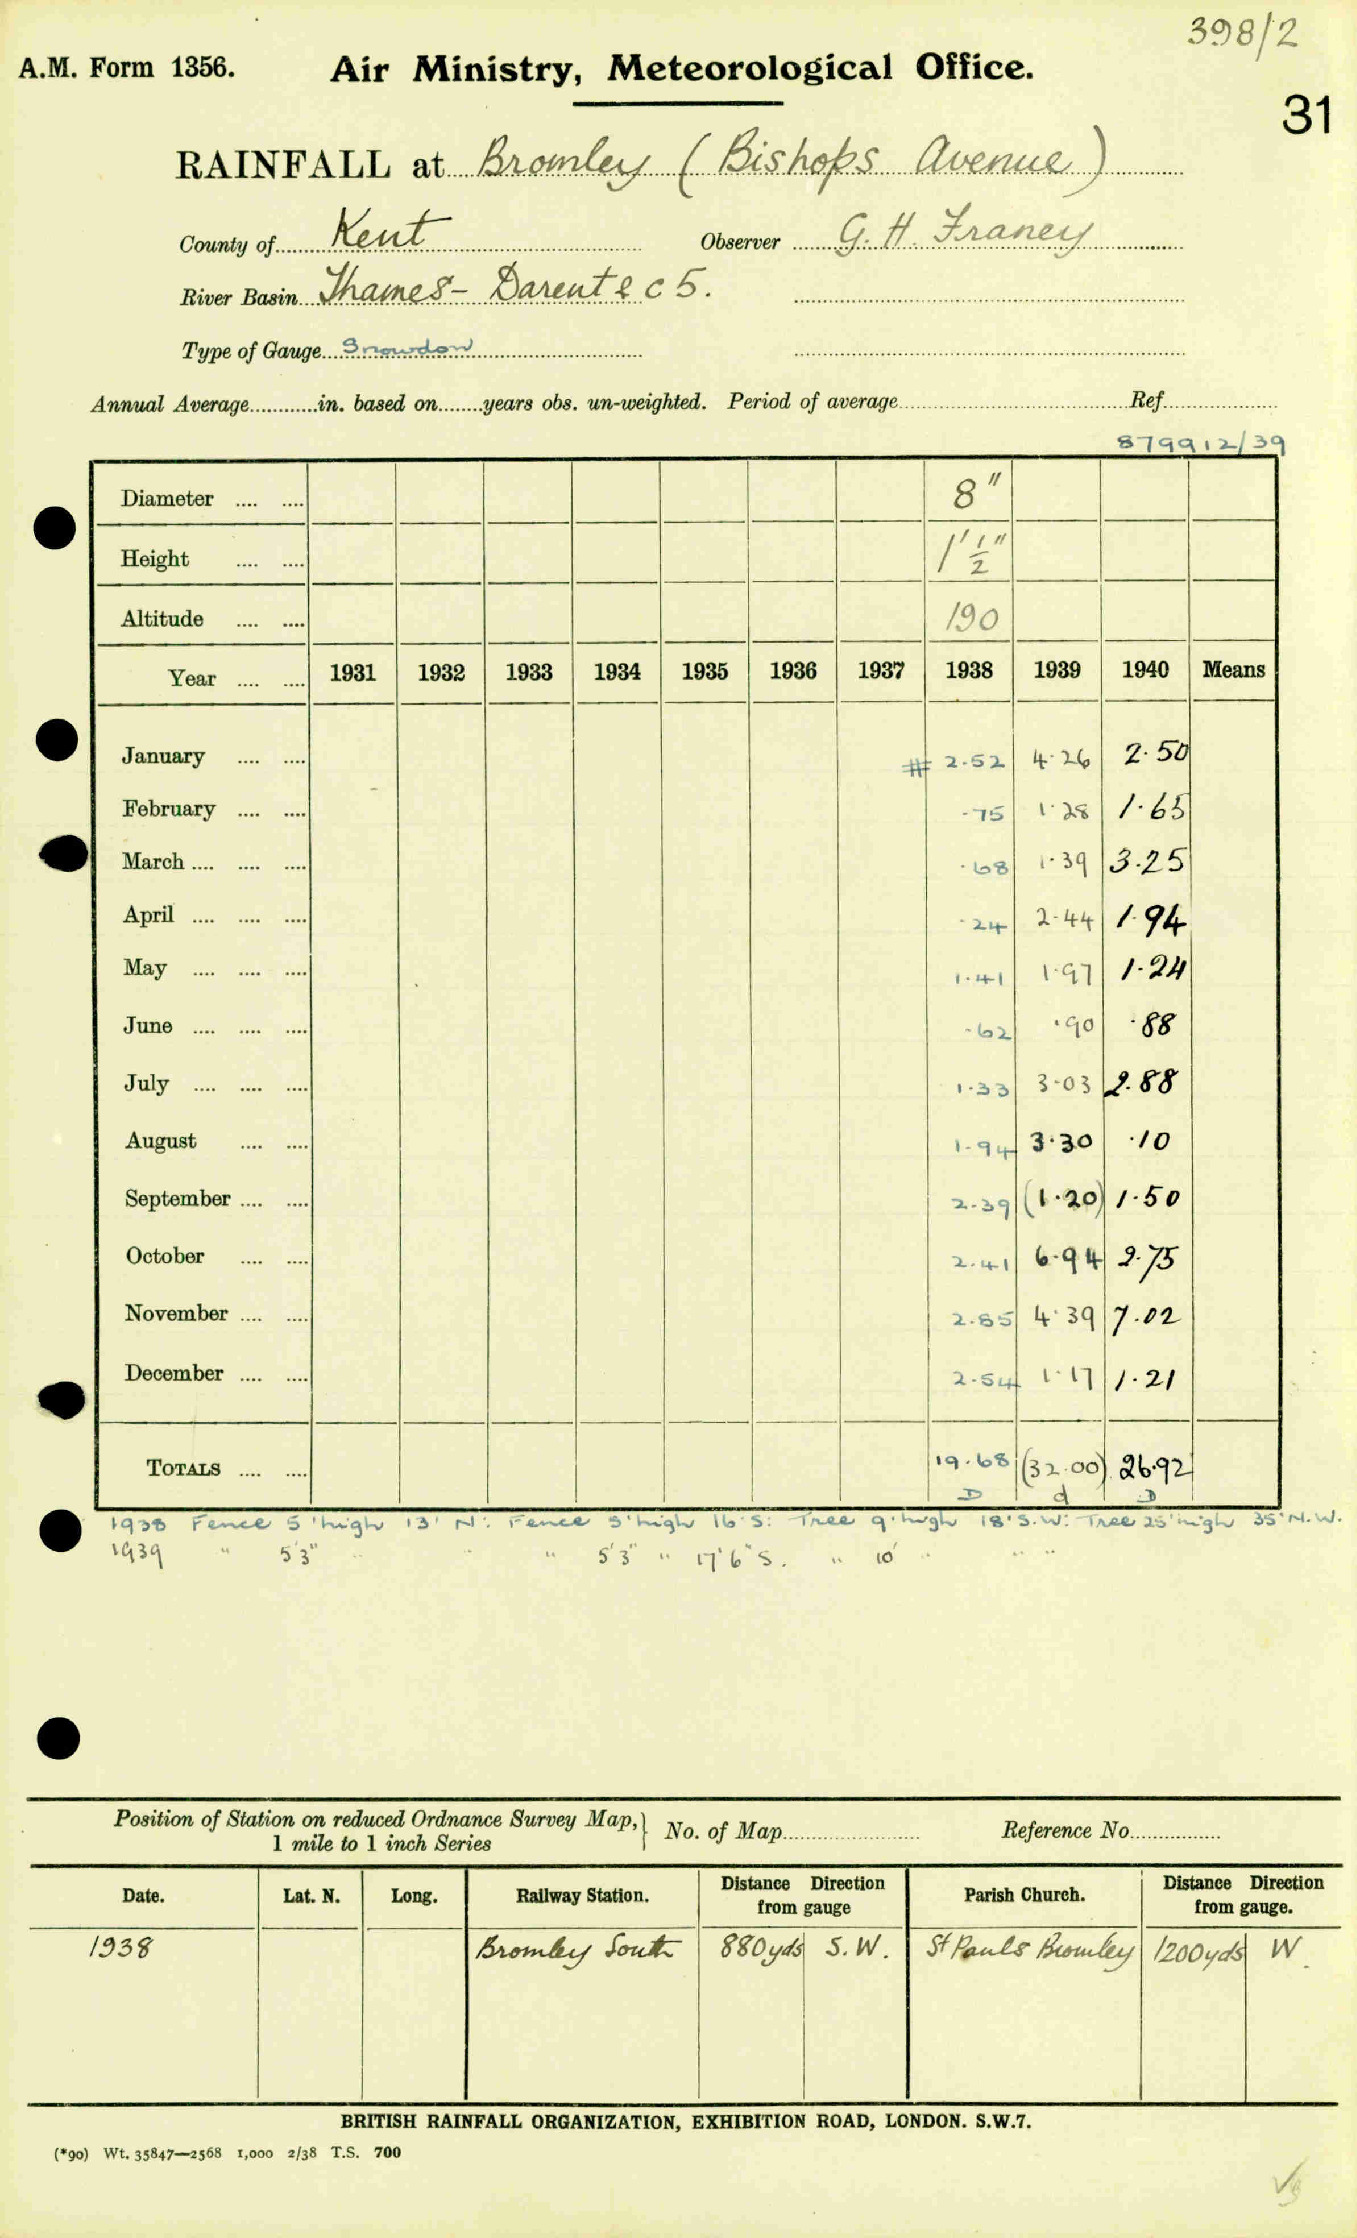 398/2
A.M. Form 1356. Air Ministry, Meteorological Office.
31
RAINFALL at Bromley (Bishops Avenue)
County of Kent Observer G. H. Franey
River Basin Thames - Darent & c 5.
Type of Gauge Snowdon
Annual Average in. based on years obs. un-weighted. Period of average Ref.
879912/39
Diameter 8"
Height 1' 1/2"
Altitude 190
Year 1931 1932 1933 1934 1935 1936 1937 1938 1939 1940 Means
January # 2.52 4.26 2.50
February .75 1.28 1.65
March .68 1.39 3.25
April .24 2.44 1.94
May 1.41 1.97 1.24
June .62 .90 .88
July 1.33 3.03 2.88
August 1.94 3.30 .10
September 2.39 (1.20) 1.50
October 2.41 6.94 2.75
November 2.85 4.39 7.02
December 2.54 1.17 1.21
TOTALS 19.68 (32.00) 26.92
D d D
1938 Fence 5' high 13' N: Fence 5' high 16' S: Tree 9' high 18' S.W: Tree 25' high 35' N.W.
1939 " 5'3" " " " 5'3" " 17'6" S. " 10' " " "
Position of Station on reduced Ordnance Survey Map, 1 mile to 1 inch Series No. of Map Reference No.
Date. Lat. N. Long. Railway Station. Distance Direction from gauge Parish Church. Distance Direction from gauge.
1938 Bromley South 880yds S.W. St Pauls Bromley 1200yds W.
BRITISH RAINFALL ORGANIZATION, EXHIBITION ROAD, LONDON. S.W.7.
(*90) Wt. 35847—2568 1,000 2/38 T.S. 700